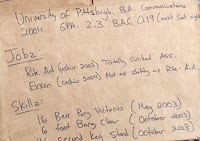 University of Pittsburgh. B.A. Communications
2004. GPA. 2.3 BAC 0.19 (most Sat nights)
Jobz:
Rite Aid (cashier 2003) Totally Sucked Ass.
Exxon (cashier 2004) Not as shitty as Rite-Aid
Skillz:
16 Beer Pong Victories (May 2003)
6 foot Bong Clear (October 2003)
second Keg Stand (October 2003)